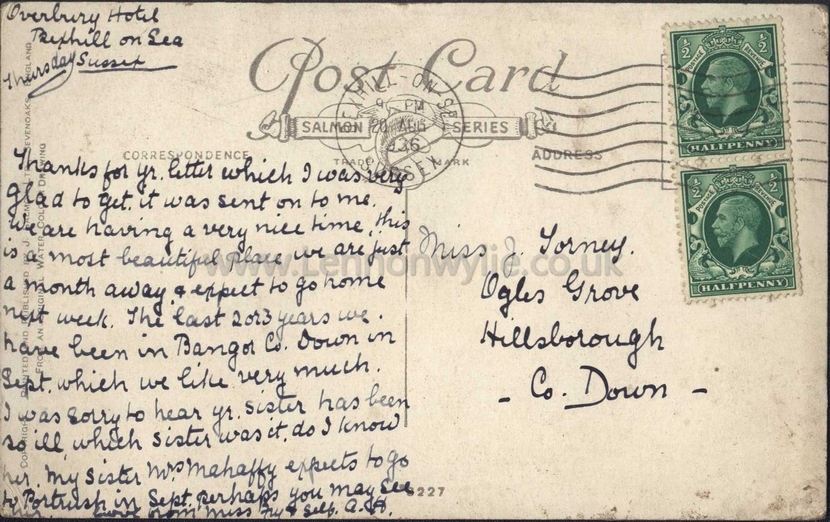 Overbury Hotel
Bexhill on Sea
Thursday Sussex
Post Card
BEXHILL-ON-SEA
9 PM
20 AUG
1936
SUSSEX
SALMON SERIES
TRADE MARK
CORRESPONDENCE
ADDRESS
Thanks for yr. letter which I was very
glad to get. it was sent on to me.
we are having a very nice time, this
is a most beautiful place we are just
a month away, & expect to go home
next week. The last 2 or 3 years we
have been in Bangor Co. Down in
Sept. which we like very much.
I was sorry to hear yr. sister has been
so ill, which sister was it, do I know
her. my sister Mrs Mahaffy expects to go
to Portrush in Sept. perhaps you may see
love from Miss Fry & self. A.H.
Miss J. Torney.
Ogles Grove
Hillsborough
- Co. Down -
½ ½
HALFPENNY
½ ½
HALFPENNY
FROM AN ORIGINAL WATER COLOUR DRAWING
3227
www.Lennonwylie.co.uk